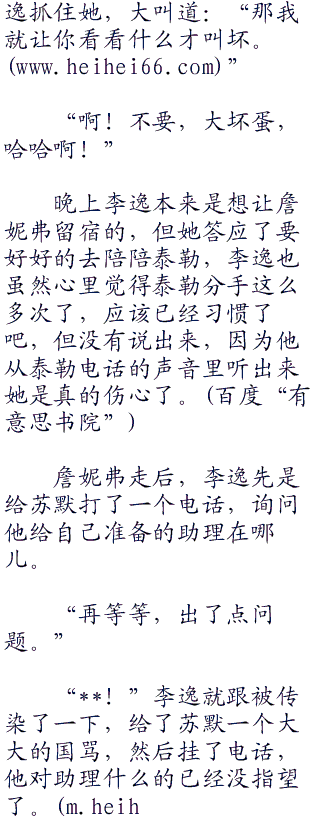 逸抓住她，大叫道：“那我
就让你看看什么才叫坏。
(www.heihei66.com)”
“啊！不要，大坏蛋，
哈哈啊！”
晚上李逸本来是想让詹
妮弗留宿的，但她答应了要
好好的去陪陪泰勒，李逸也
虽然心里觉得泰勒分手这么
多次了，应该已经习惯了
吧，但没有说出来，因为他
从泰勒电话的声音里听出来
她是真的伤心了。(百度“有
意思书院”)
詹妮弗走后，李逸先是
给苏默打了一个电话，询问
他给自己准备的助理在哪
儿。
“再等等，出了点问
题。”
“**！”李逸就跟被传
染了一下，给了苏默一个大
大的国骂，然后挂了电话，
他对助理什么的已经没指望
了。(m.heih